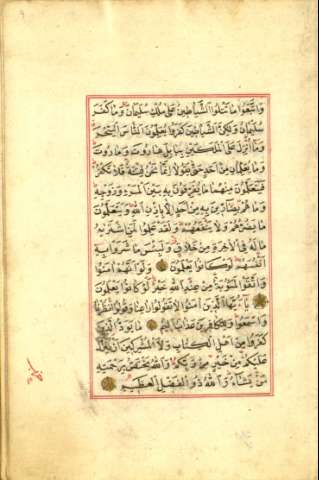 وَاتَّبَعُوا مَا تَتْلُوا الشَّيَاطِينُ عَلَى مُلْكِ سُلَيْمَانَ وَمَا كَفَرَ
سُلَيْمَانُ وَلَكِنَّ الشَّيَاطِينَ كَفَرُوا يُعَلِّمُونَ النَّاسَ السِّحْرَ
وَمَا أُنْزِلَ عَلَى الْمَلَكَيْنِ بِبَابِلَ هَارُوتَ وَمَارُوتَ
وَمَا يُعَلِّمَانِ مِنْ أَحَدٍ حَتَّى يَقُولَا إِنَّمَا نَحْنُ فِتْنَةٌ فَلَا تَكْفُرْ
فَيَتَعَلَّمُونَ مِنْهُمَا مَا يُفَرِّقُونَ بِهِ بَيْنَ الْمَرْءِ وَزَوْجِهِ
وَمَا هُمْ بِضَارِّينَ بِهِ مِنْ أَحَدٍ إِلَّا بِإِذْنِ اللَّهِ وَيَتَعَلَّمُونَ
مَا يَضُرُّهُمْ وَلَا يَنْفَعُهُمْ وَلَقَدْ عَلِمُوا لَمَنِ اشْتَرَاهُ
مَا لَهُ فِي الْآخِرَةِ مِنْ خَلَاقٍ وَلَبِئْسَ مَا شَرَوْا بِهِ
أَنْفُسَهُمْ لَوْ كَانُوا يَعْلَمُونَ وَلَوْ أَنَّهُمْ آمَنُوا
وَاتَّقَوْا لَمَثُوبَةٌ مِنْ عِنْدِ اللَّهِ خَيْرٌ لَوْ كَانُوا يَعْلَمُونَ
يَا أَيُّهَا الَّذِينَ آمَنُوا لَا تَقُولُوا رَاعِنَا وَقُولُوا انْظُرْنَا
وَاسْمَعُوا وَلِلْكَافِرِينَ عَذَابٌ أَلِيمٌ مَا يَوَدُّ الَّذِينَ
كَفَرُوا مِنْ أَهْلِ الْكِتَابِ وَلَا الْمُشْرِكِينَ أَنْ يُنَزَّلَ
عَلَيْكُمْ مِنْ خَيْرٍ مِنْ رَبِّكُمْ وَاللَّهُ يَخْتَصُّ بِرَحْمَتِهِ
مَنْ يَشَاءُ وَاللَّهُ ذُو الْفَضْلِ الْعَظِيمِ